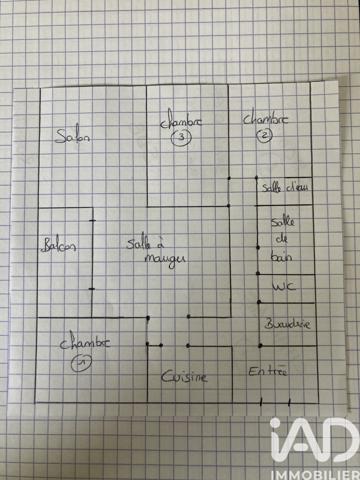 Salon
chambre
3
chambre
2
Salle d'eau
Salle
de
bain
Balcon
Salle à
manger
WC
Buanderie
chambre
1
Cuisine
Entrée
iAD
IMMOBILIER